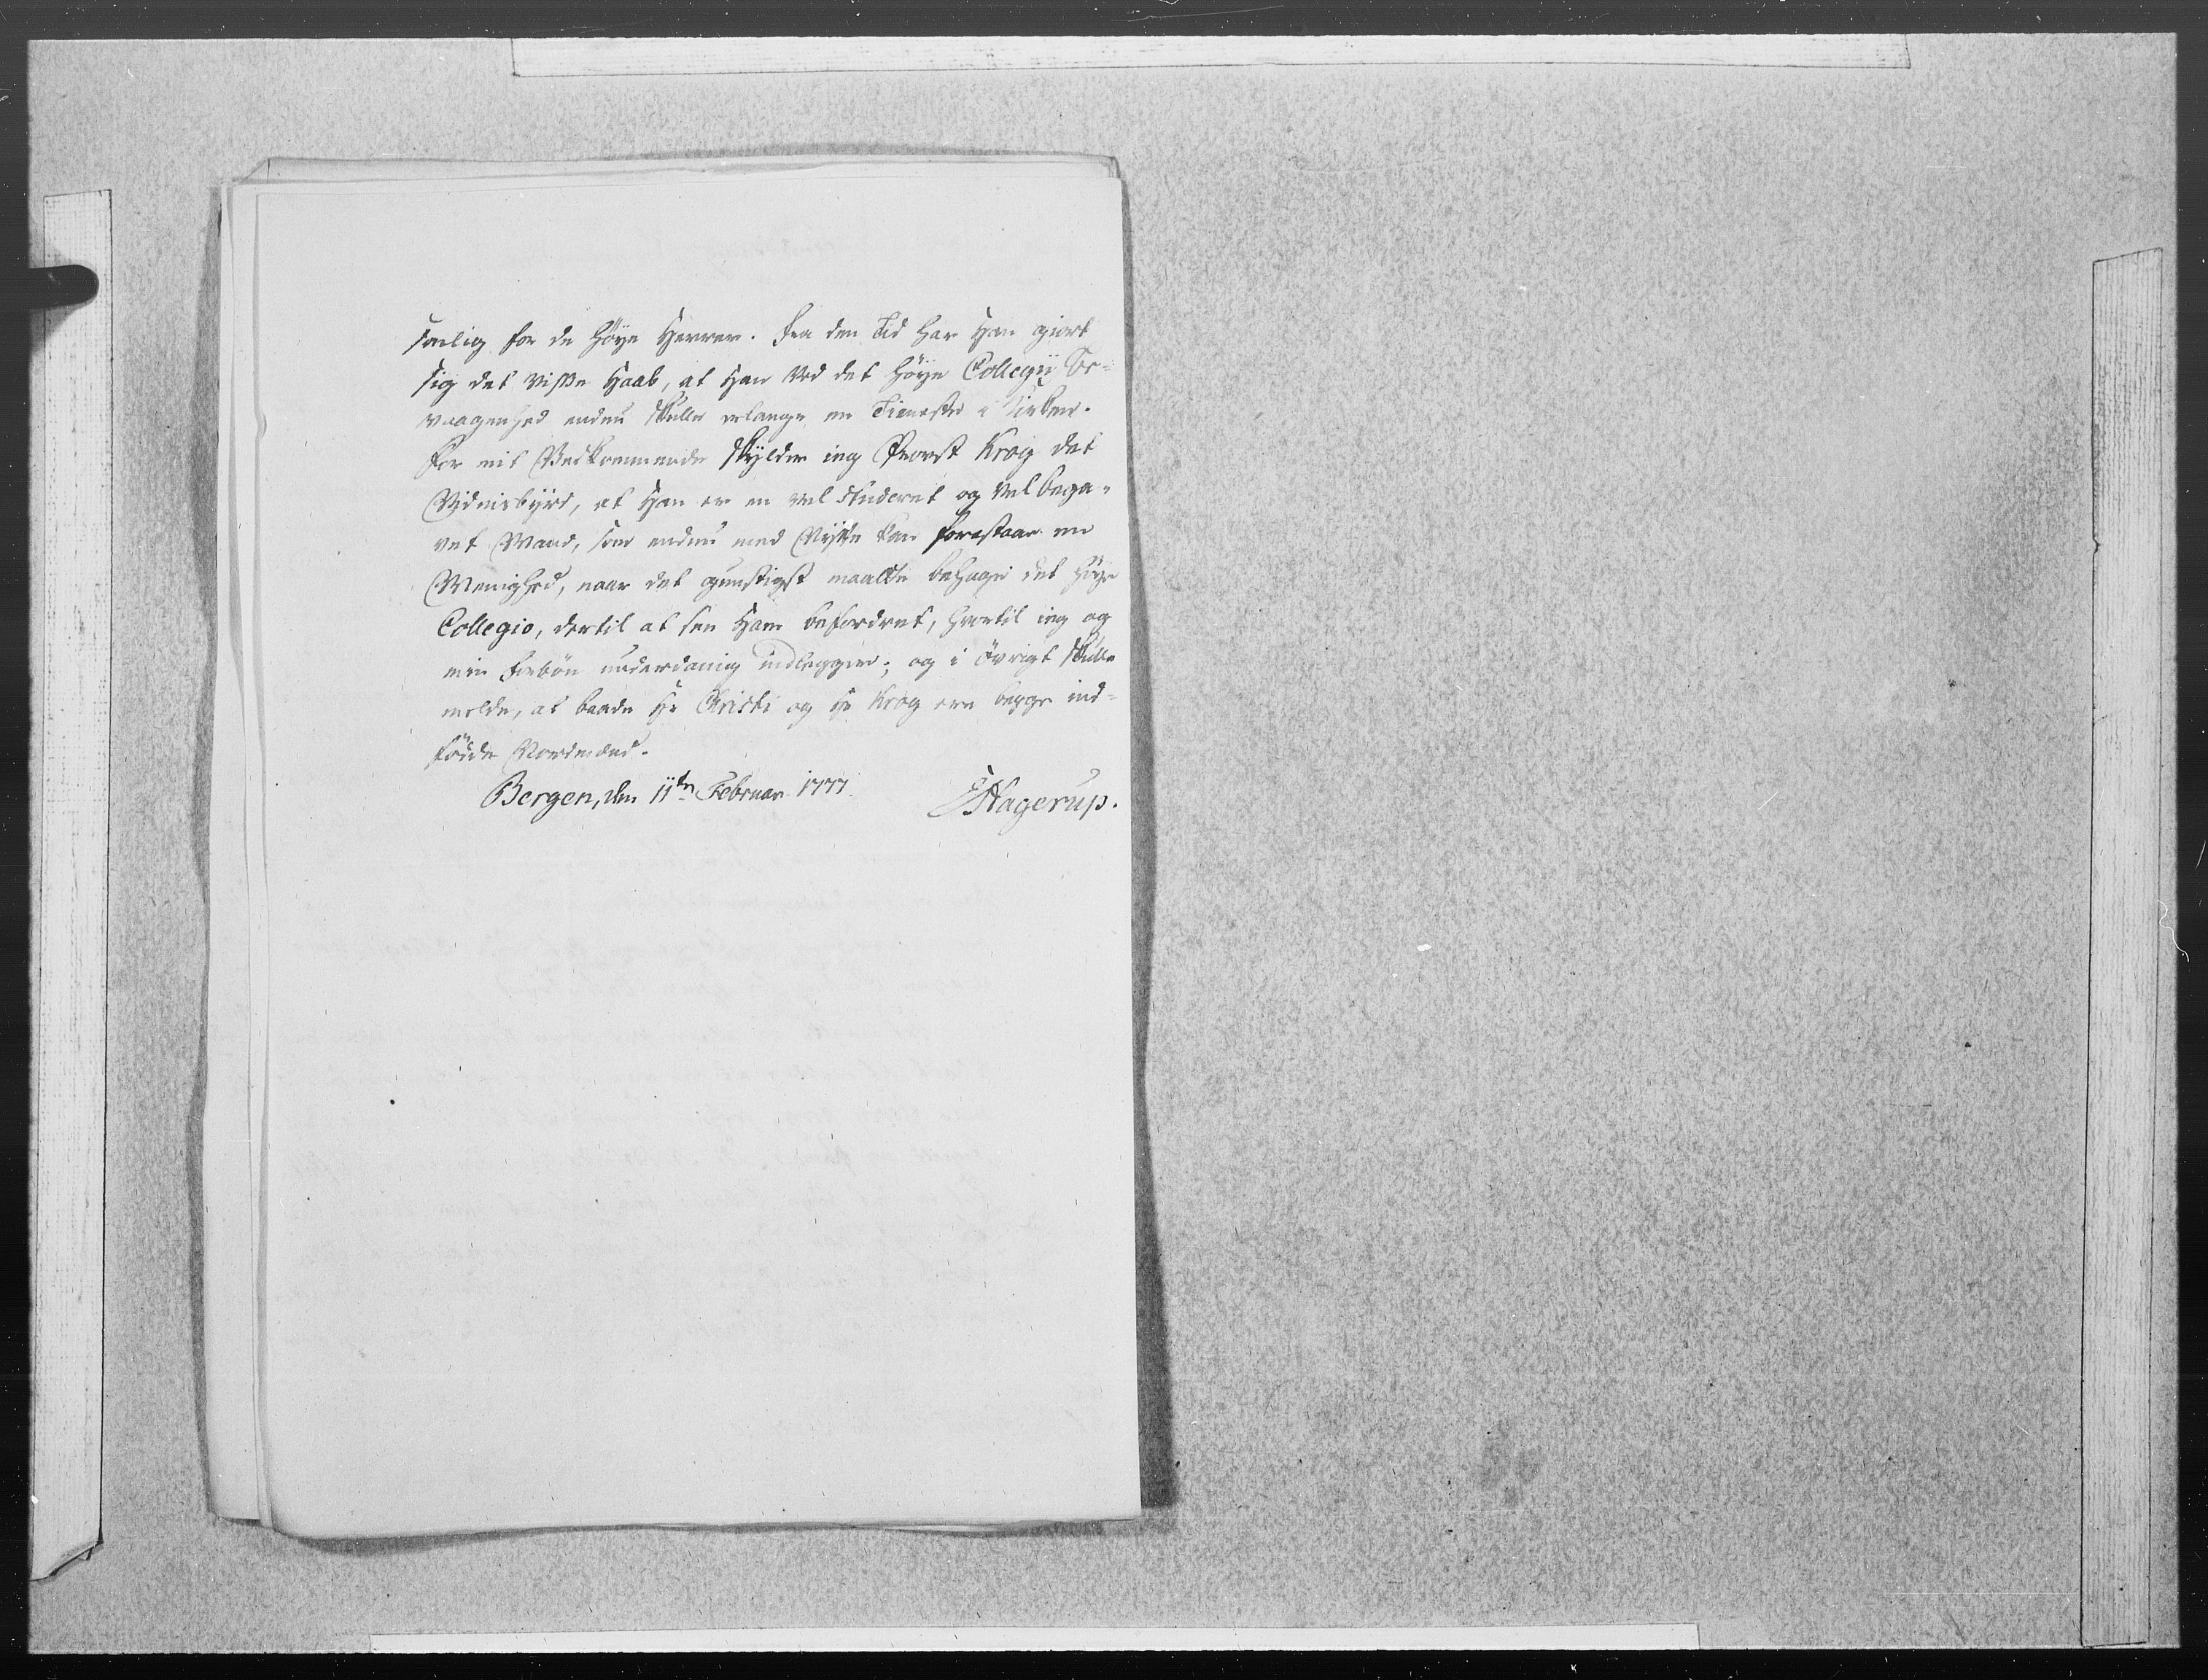 sonlig for de høye Herrer. Fra den Tid har Han giort
sig det visse Haab, at Han ved det høye Collegii Be-
vaagenhed endnu skulle erlange en Tieneste i Kirken.
For mit Vedkommende skylder ieg Provst Krog det
Vidnisbyrd, at Han er en vel studeret og vel bega-
vet Mand, som endnu med Nytte kan forestaae en
Menighed, naar det gunstigst maatte behage det høye
Collegio, dertil at see Ham befordret, hvortil ieg og
min Forbøn underdanig indlegger; og i øvrigt skulle
melde, at baade Hr Christi og Hr Krog ere begge ind-
fødde Nordmænd.
Bergen, den 11te Februar 1777.
EHagerup.